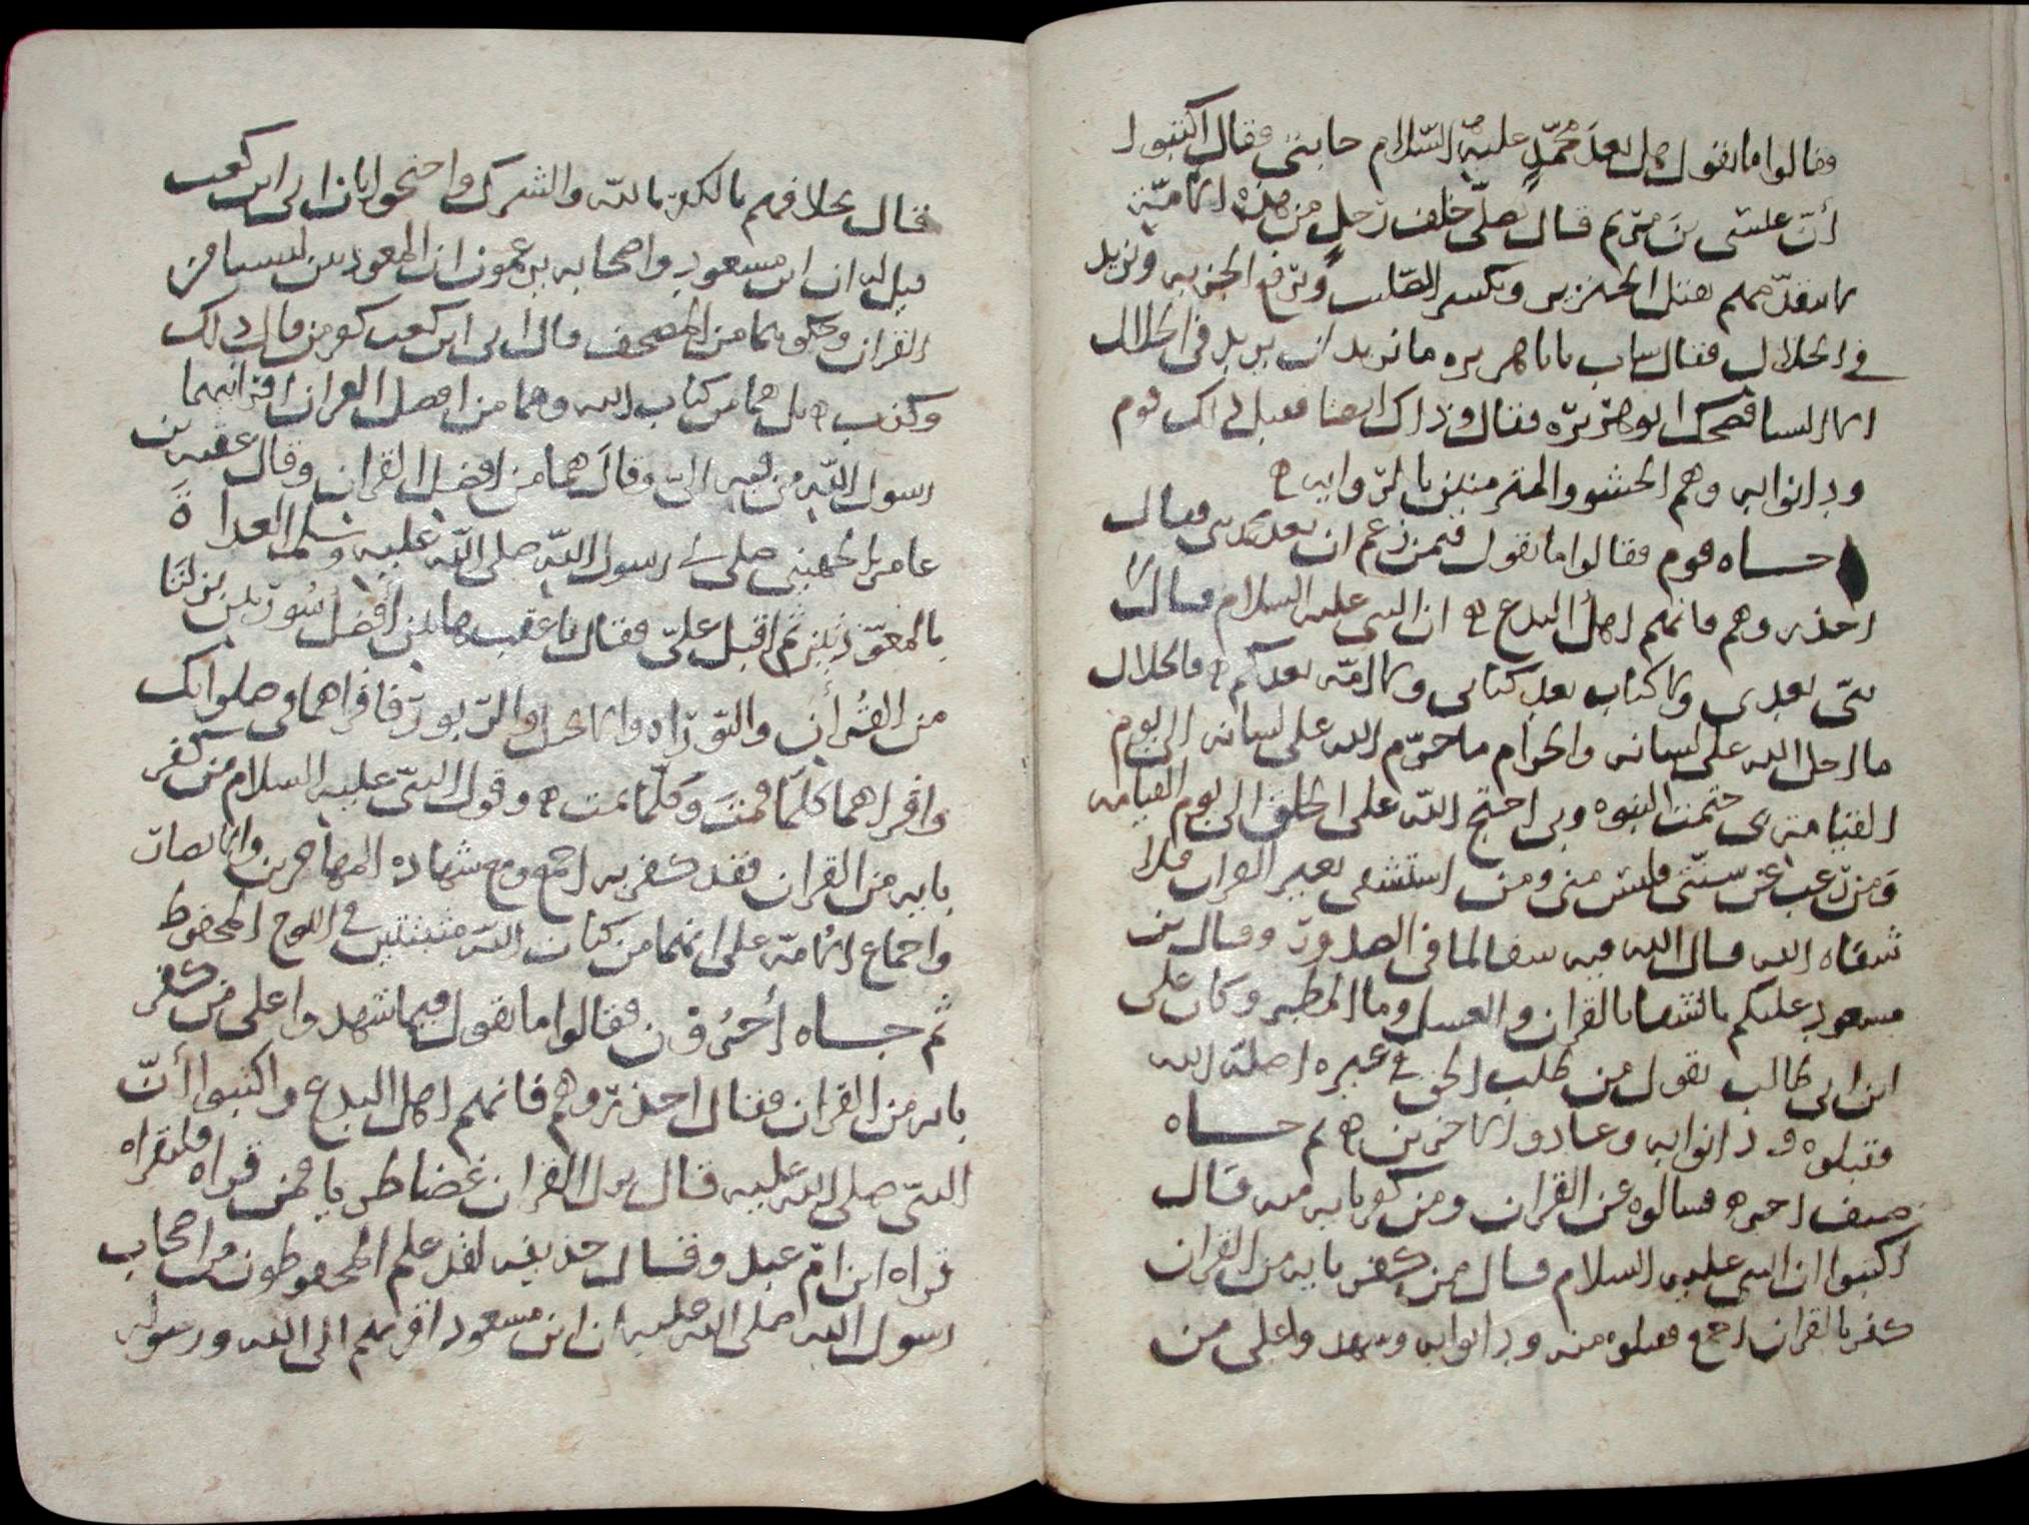 وقالوا ما تقول هل بعد محمد عليه السلام حابنى فقال اكتبوا
أن عيسى بن مريم قال يصلى خلف رجل من هذه الامة
لا يتقدمهم يقتل الخنزير ويكسر الصليب ويرفع الجزية ويزيد
في الحلال فقال شاب يابا هريره ما نريد ان يزيد في الحلال
الا النسا فضحك ابو هريره فقال وذاك ايضا فقبل ذلك قوم
ودانوا به وهم الحشو والمترمنين بالروايه
جاه قوم فقالوا ما تقول فيمن زعم ان بعد فقال
احذروهم فانهم اهل البدع ان النبى عليه السلام قال لا
نبى بعدى ولا كتاب بعد كتابى ولا امة بعدكم فالحلال
ما احل الله على لسانه والحرام ما حرم الله على لسانه الى يوم
القيامة بى ختمت النبوه وبى احتج الله على الخلق الى يوم القيامه
ومن رغب عن سنتى فليس منى ومن استشفى بغير القران فلا
شفاه الله قال الله فيه شفا لما فى الصدور وقال بن
مسعود عليكم بالشفا بالقران والعسل وما المطر وكان على
ابن ابى طالب يقول من طلب الحق في غيره اضله الله
فقبلوه ودانوا به وعادوا الاخرين ثم جاه
صنف اخر فسالوه عن القران ومن كفر بايه منه قال
اكتبوا ان النبى عليه السلام قال من كفر بايه من القران
كفر بالقران اجمع فقبلوه منه ودانوا به وشهدوا على من
قال بخلافهم بالكفر بالله والشرك واحتجوا بان ابى ابن كعب
قيل له ان ابن مسعود واصحابه يزعمون ان المعوذتين ليسا من
القران وحكوهما من المصحف قال ابى ابن كعب كفر من قال ذلك
وكذب بل هما من كتاب الله وهما من افضل القران اقرانيهما
رسول الله من فيه الى وقال هما من افضل القران وقال عقبه بن
عامر الجهينى صلى بنا رسول الله صلى الله عليه وسلم الغداة
بالمعوذتين ثم اقبل على فقال يا عقب هاتين أفضل سورتين نزلتا
من القرأن والتوراه والانجيل والزبور فاقراهما فى صلواتك
واقراهما كلما قمت وكلما نمت وقول النبى عليه السلام من كفر
بايه من القران فقد كفر به اجمع ومع شهاده المهاجرين والانصار
واجماع الامة على انهما من كتاب الله مثبتتين في اللوح المحفوظ
ثم جاه أخرون فقالوا ما تقول فيما شهدوا على من كفر
بايه من القران فقال احذروهم فانهم اهل البدع واكتبوا أن
النبى صلى الله عليه قال نزل القران غضا طريا فمن قراه فليقراه
قراه ابن ام عبد وقال حذيفه لقد علم المحفوظون من اصحاب
رسول الله صلى الله عليه ان ابن مسعود اقربهم الى الله ورسوله